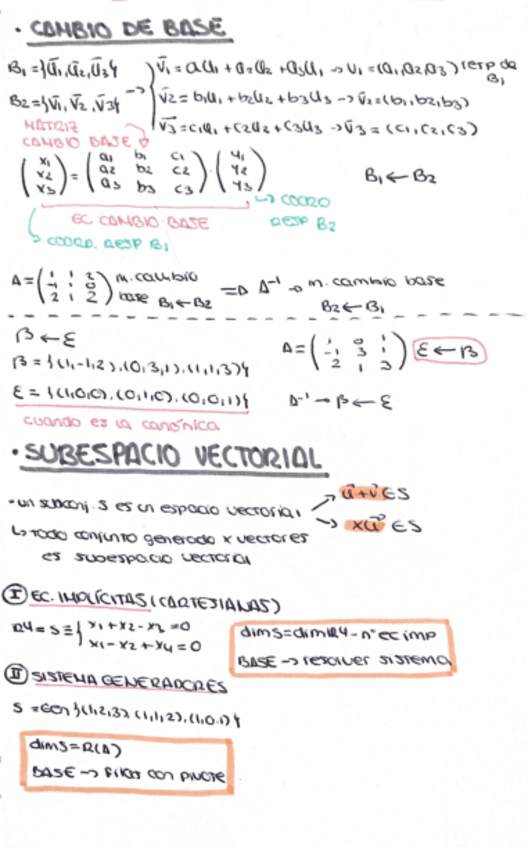 · CAMBIO DE BASE
B₁ = {ū₁, ū₂, ū₃}
B₂ = {v̄₁, v̄₂, v̄₃} →
v̄₁ = a₁u₁ + a₂u₂ + a₃u₁ → v₁ = (a₁, a₂, a₃) resp de B₁
v̄₂ = b₁u₁ + b₂u₂ + b₃u₃ → v̄₂ = (b₁, b₂, b₃)
v̄₃ = c₁u₁ + c₂u₂ + c₃u₃ → v̄₃ = (c₁, c₂, c₃)
MATRIZ
CAMBIO BASE
(x₁ x₂ x₃) = (a₁ b₁ c₁ a₂ b₂ c₂ a₃ b₃ c₃) · (y₁ y₂ y₃)
B₁ ← B₂
↳ COORD
RESP B₂
EC CAMBIO BASE
↳ COORD. RESP B₁
A = (1 1 2 -1 1 0 2 1 2) m. cambio base B₁ ← B₂ ⇒ A⁻¹ → m. cambio base B₂ ← B₁
β ← ε
β = {(1,-1,2), (0,3,1), (1,1,3)}
ε = {(1,0,0), (0,1,0), (0,0,1)}
cuando es la canónica
A = (1 0 1 -1 3 1 2 1 3) ε ← β
A⁻¹ → β ← ε
· SUBESPACIO VECTORIAL
- un subconj. S es un espacio vectorial
→ ū+v̄ ∈ S
→ xū ∈ S
↳ todo conjunto generado x vectores
es subespacio vectorial
I EC. IMPLÍCITAS (CARTESIANAS)
R4 = S ≡ { x₁ + x₂ - x₃ = 0
x₁ - x₂ + x₄ = 0
dimS = dimR4 - nº ec imp
BASE → resolver sistema
II SISTEMA GENERADORES
S = Gen {(1,2,3), (1,1,2), (1,0,1)}
dimS = R(A)
BASE → filas con pivote